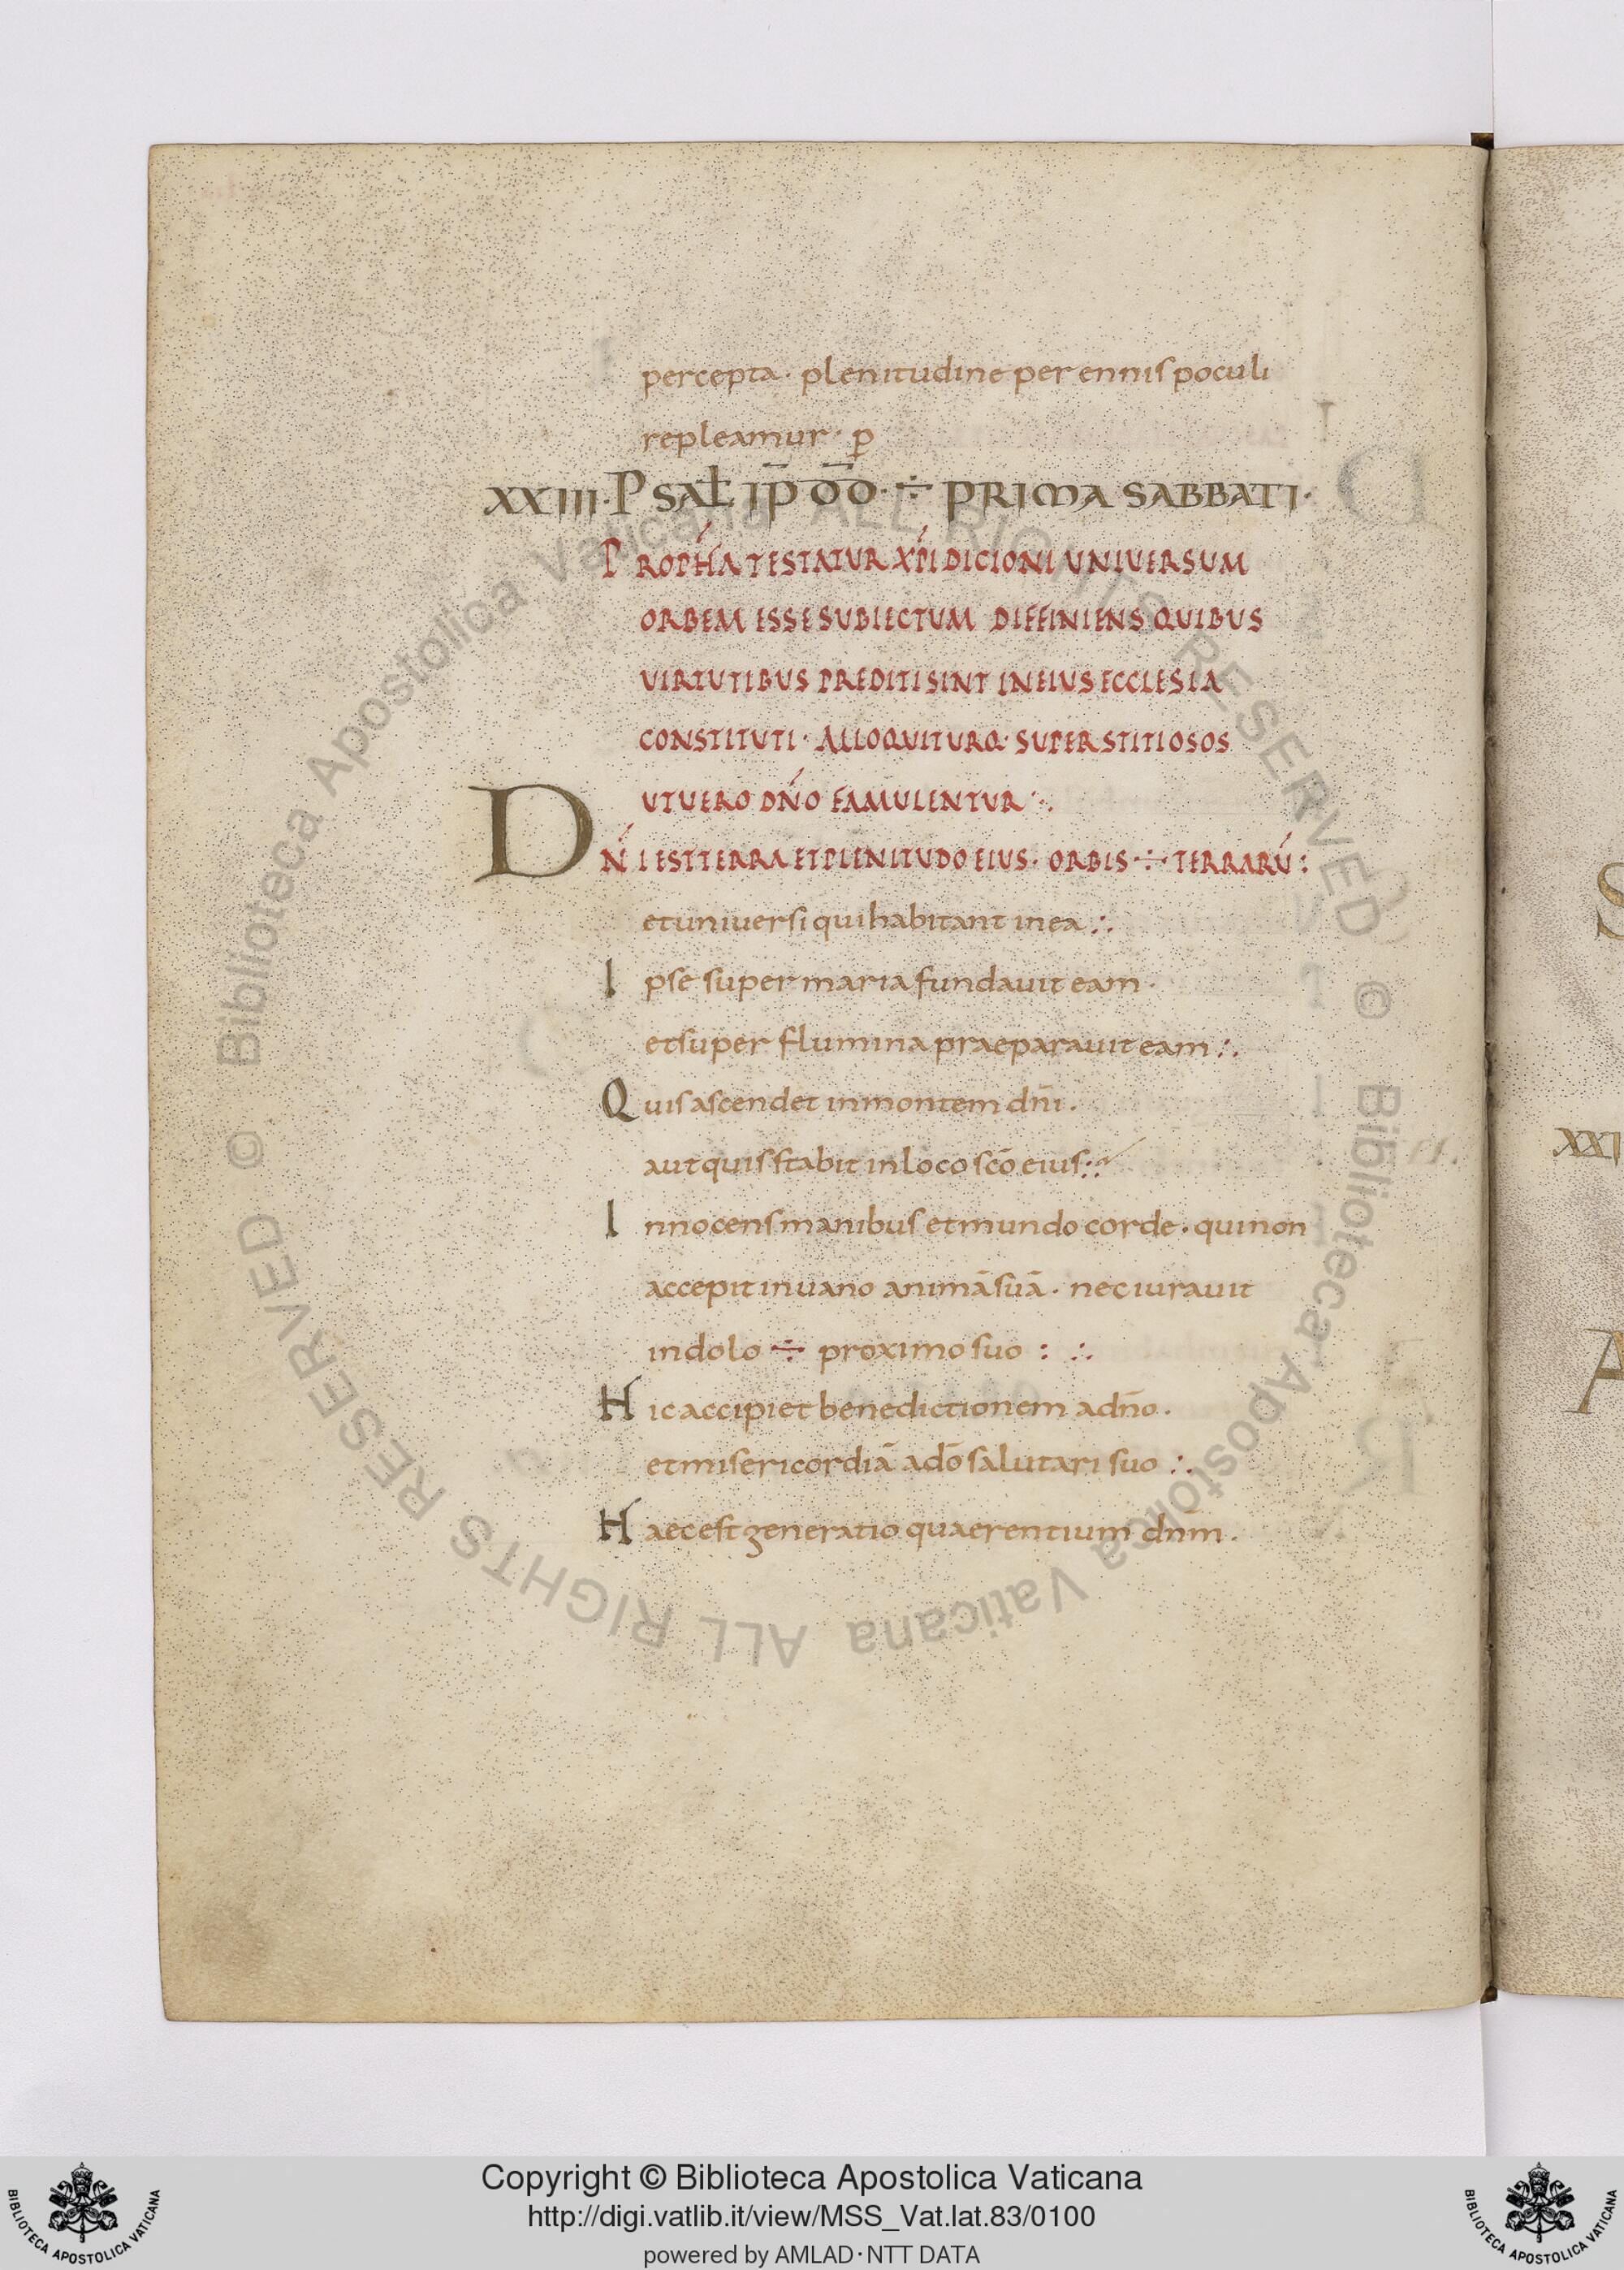 percepta · plenitudine perennis poculi
repleamur · p̱
XXIII · PSAŁ IP̄ D̄D̄ · ÷ PRIMA SABBATI ·
PROPH́A TESTATUR XṔI DICIONI UNIUERSUM
ORBEM ESSE SUBIECTUM DIFFINIENS QUIBUS
UIRTUTIBUS PREDITI SINT IN EIUS ECCLESIA
CONSTITUTI · ALLOQUITURQ · SUPERSTITIOSOS
UT UERO DŃO FAMULENTUR ∴
DŃI EST TERRA ET PLENITUDO EIUS · ORBIS · ÷ · TERRARŪ :
et uniuersi qui habitant in ea ∴
Ipse super maria fundauit eam ·
et super flumina praeparauit eam ∴
Quis ascendet in montem dn̄i .
aut quis stabit in loco sc̄o eius ∴
Innocens manibus et mundo corde · qui non
accepit in uano animā suā · nec iurauit
in dolo ÷ proximo suo : ∴
Hic accipiet benedictionem a dn̄o .
et misericordiā a dō salutari suo ∴
Haec est generatio quaerentium dnm̄ .
XXI
S
A
© Biblioteca Apostolica Vaticana ALL RIGHTS RESERVED
© Biblioteca Apostolica Vaticana ALL RIGHTS RESERVED
Copyright © Biblioteca Apostolica Vaticana
http://digi.vatlib.it/view/MSS_Vat.lat.83/0100
powered by AMLAD · NTT DATA
BIBLIOTECA APOSTOLICA VATICANA
BIBLIOTECA APOSTOLICA VATICANA